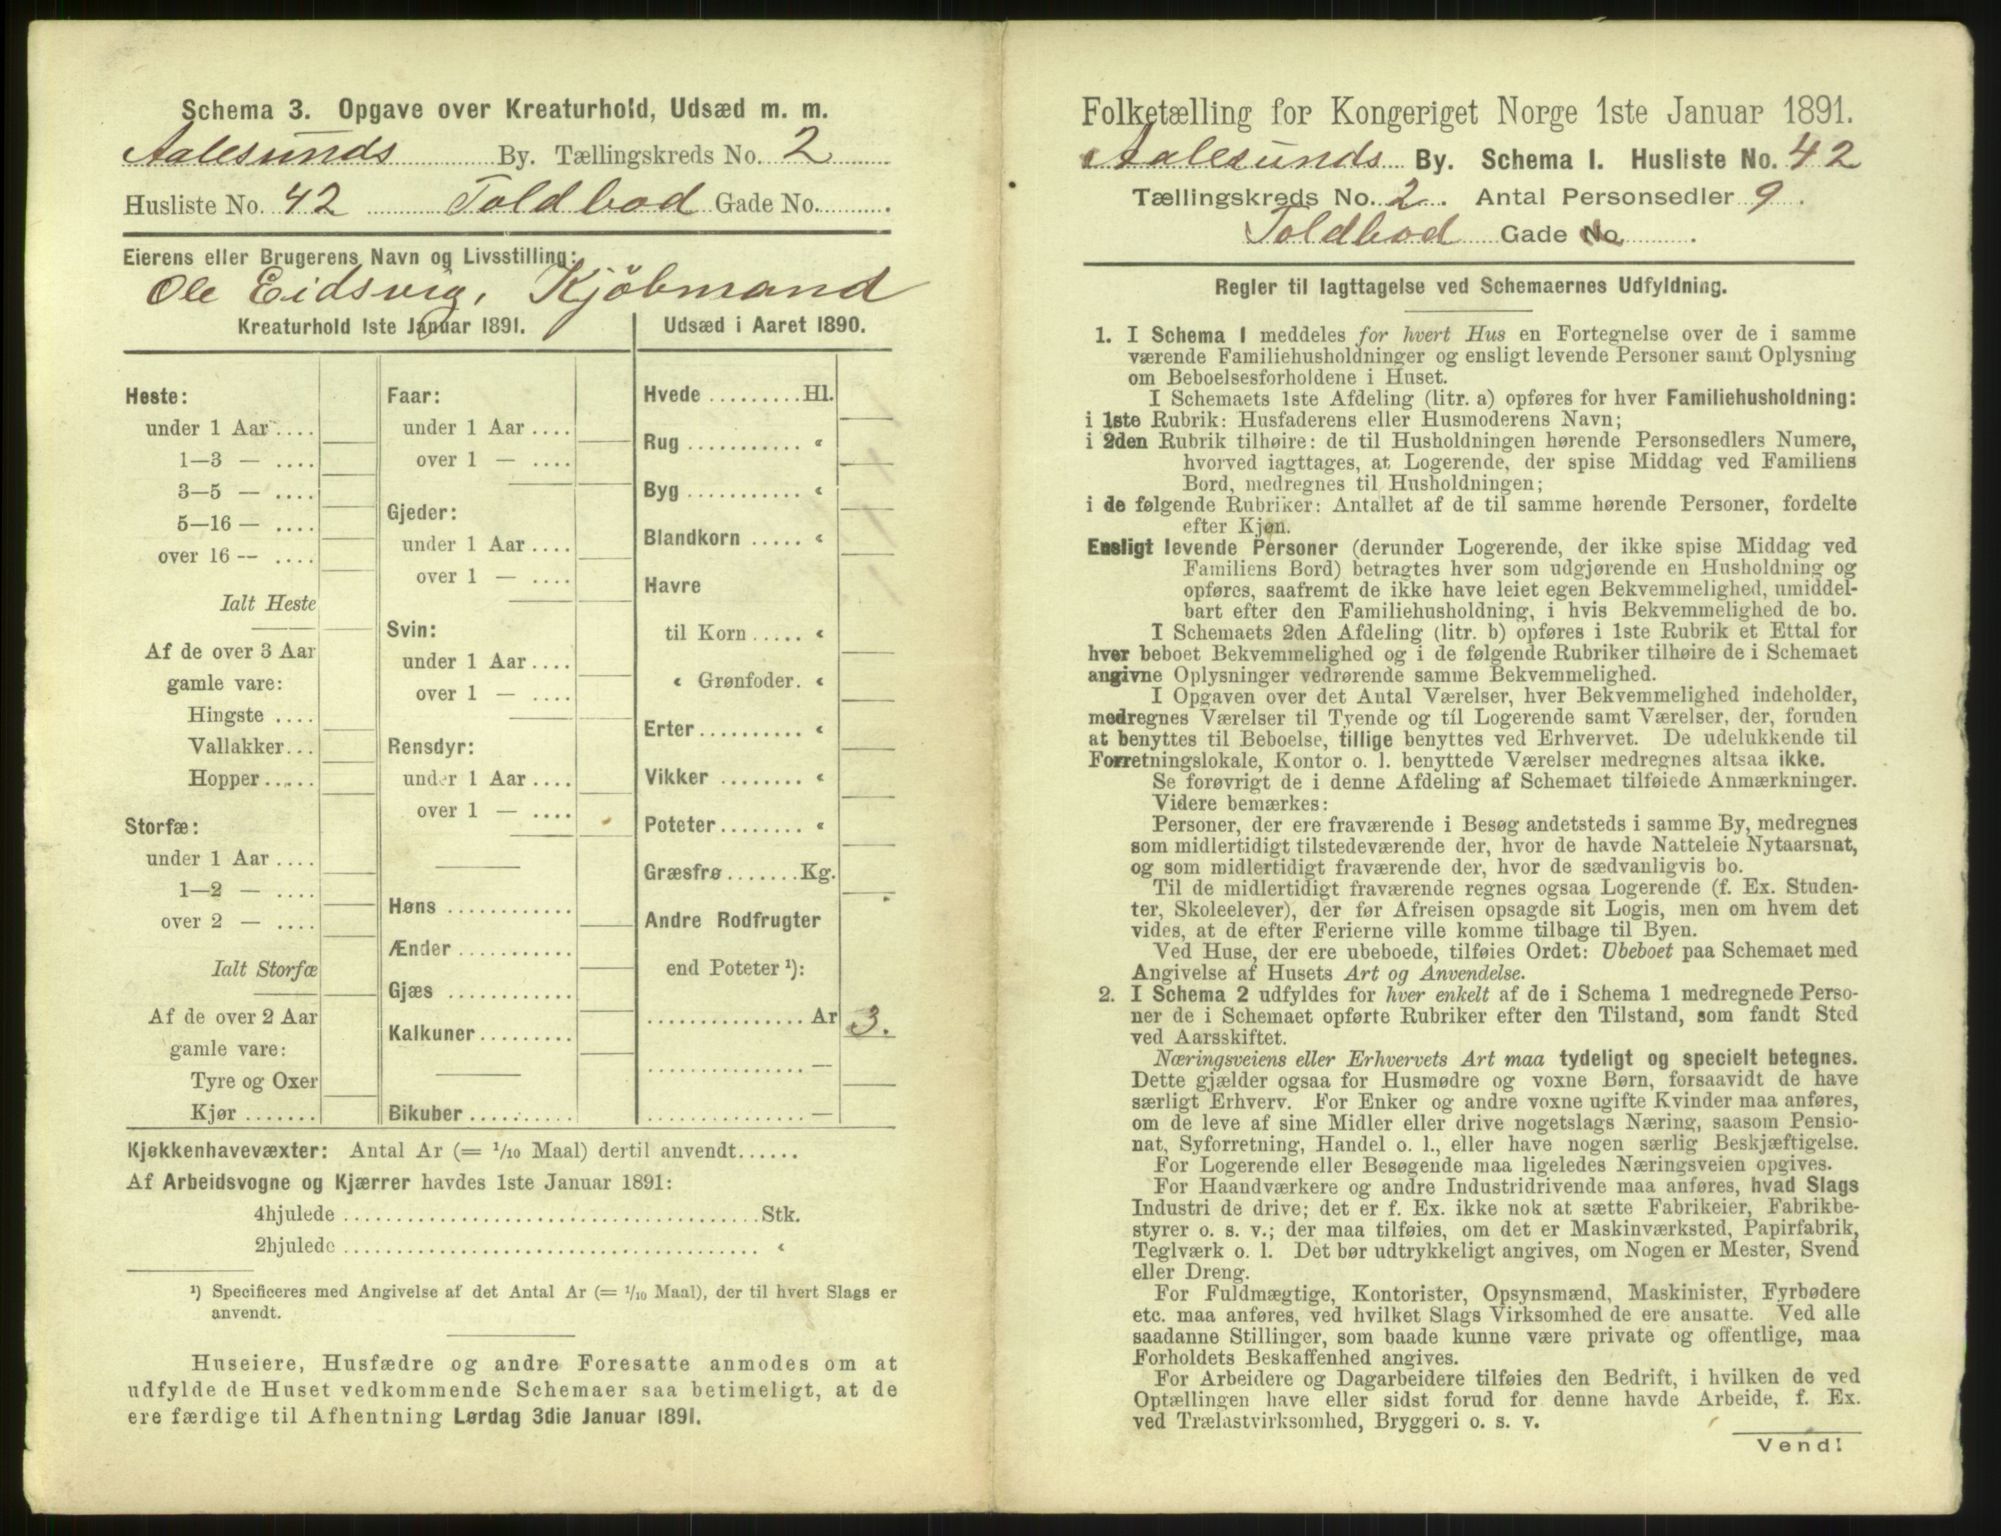 Schema 3. Opgave over Kreaturhold, Udsæd m. m.
Aalesunds By. Tællingskreds No. 2
Husliste No. 42 Toldbod Gade No.
Eierens eller Brugerens Navn og Livsstilling:
Ole Eidsvig, Kjöbmand
Kreaturhold 1ste Januar 1891.
Heste:
under 1 Aar ....
1—3 — ....
3—5 — ....
5—16 — ....
over 16 — ....
Ialt Heste
Af de over 3 Aar
gamle vare:
Hingste ....
Vallakker...
Hopper.....
Storfæ:
under 1 Aar ....
1—2 — ....
over 2 — ....
Ialt Storfæ
Af de over 2 Aar
gamle vare:
Tyre og Oxer
Kjør .......
Faar:
under 1 Aar ....
over 1 — ....
Gjeder:
under 1 Aar ....
over 1 — ....
Svin:
under 1 Aar ....
over 1 — ....
Rensdyr:
under 1 Aar ....
over 1 — ....
Høns ............
Ænder ...........
Gjæs ............
Kalkuner.........
Bikuber ..........
Udsæd i Aaret 1890.
Hvede .........Hl.
Rug ........... «
Byg ........... «
Blandkorn ..... «
Havre
til Korn ..... «
« Grønfoder. «
Erter .......... «
Vikker ........ «
Poteter ........ «
Græsfrø .......Kg.
Andre Rodfrugter
end Poteter ¹):
............... Ar 3.
............... —
............... —
Kjøkkenhavevæxter: Antal Ar (= 1/10 Maal) dertil anvendt......
Af Arbeidsvogne og Kjærrer havdes 1ste Januar 1891:
4hjulede ........................................Stk.
2hjulede ........................................ «
¹) Specificeres med Angivelse af det Antal Ar (= 1/10 Maal), der til hvert Slags er
anvendt.
Huseiere, Husfædre og andre Foresatte anmodes om at
udfylde de Huset vedkommende Schemaer saa betimeligt, at de
ere færdige til Afhentning Lørdag 3die Januar 1891.
Folketælling for Kongeriget Norge 1ste Januar 1891.
Aalesunds By. Schema I. Husliste No. 42
Tællingskreds No. 2. Antal Personsedler 9.
Toldbod Gade No.
Regler til Iagttagelse ved Schemaernes Udfyldning.
1. I Schema 1 meddeles for hvert Hus en Fortegnelse over de i samme
værende Familiehusholdninger og ensligt levende Personer samt Oplysning
om Beboelsesforholdene i Huset.
I Schemaets 1ste Afdeling (litr. a) opføres for hver Familiehusholdning:
i 1ste Rubrik: Husfaderens eller Husmoderens Navn;
i 2den Rubrik tilhøire: de til Husholdningen hørende Personsedlers Numere,
hvorved iagttages, at Logerende, der spise Middag ved Familiens
Bord, medregnes til Husholdningen;
i de følgende Rubriker: Antallet af de til samme hørende Personer, fordelte
efter Kjøn.
Ensligt levende Personer (derunder Logerende, der ikke spise Middag ved
Familiens Bord) betragtes hver som udgjørende en Husholdning og
opføres, saafremt de ikke have leiet egen Bekvemmelighed, umiddel-
bart efter den Familiehusholdning, i hvis Bekvemmelighed de bo.
I Schemaets 2den Afdeling (litr. b) opføres i 1ste Rubrik et Ettal for
hver beboet Bekvemmelighed og i de følgende Rubriker tilhøire de i Schemaet
angivne Oplysninger vedrørende samme Bekvemmelighed.
I Opgaven over det Antal Værelser, hver Bekvemmelighed indeholder,
medregnes Værelser til Tyende og til Logerende samt Værelser, der, foruden
at benyttes til Beboelse, tillige benyttes ved Erhvervet. De udelukkende til
Forretningslokale, Kontor o. l. benyttede Værelser medregnes altsaa ikke.
Se forøvrigt de i denne Afdeling af Schemaet tilføiede Anmærkninger.
Videre bemærkes:
Personer, der ere fraværende i Besøg andetsteds i samme By, medregnes
som midlertidigt tilstedeværende der, hvor de havde Natteleie Nytaarsnat,
og som midlertidigt fraværende der, hvor de sædvanligvis bo.
Til de midlertidigt fraværende regnes ogsaa Logerende (f. Ex. Studen-
ter, Skoleelever), der før Afreisen opsagde sit Logis, men om hvem det
vides, at de efter Ferierne ville komme tilbage til Byen.
Ved Huse, der ere ubeboede, tilføies Ordet: Ubeboet paa Schemaet med
Angivelse af Husets Art og Anvendelse.
2. I Schema 2 udfyldes for hver enkelt af de i Schema 1 medregnede Perso-
ner de i Schemaet opførte Rubriker efter den Tilstand, som fandt Sted
ved Aarsskiftet.
Næringsveiens eller Erhvervets Art maa tydeligt og specielt betegnes.
Dette gjælder ogsaa for Husmødre og voxne Børn, forsaavidt de have
særligt Erhverv. For Enker og andre voxne ugifte Kvinder maa anføres,
om de leve af sine Midler eller drive nogetslags Næring, saasom Pensio-
nat, Syforretning, Handel o. l., eller have nogen særlig Beskjæftigelse.
For Logerende eller Besøgende maa ligeledes Næringsveien opgives.
For Haandværkere og andre Industridrivende maa anføres, hvad Slags
Industri de drive; det er f. Ex. ikke nok at sætte Fabrikeier, Fabrikbe-
styrer o. s. v.; der maa tilføies, om det er Maskinværksted, Papirfabrik,
Teglværk o. l. Det bør udtrykkeligt angives, om Nogen er Mester, Svend
eller Dreng.
For Fuldmægtige, Kontorister, Opsynsmænd, Maskinister, Fyrbødere
etc. maa anføres, ved hvilket Slags Virksomhed de ere ansatte. Ved alle
saadanne Stillinger, som baade kunne være private og offentlige, maa
Forholdets Beskaffenhed angives.
For Arbeidere og Dagarbeidere tilføies den Bedrift, i hvilken de ved
Optællingen have eller sidst forud for denne havde Arbeide, f. Ex.
ved Trælastvirksomhed, Bryggeri o. s. v.
Vend!